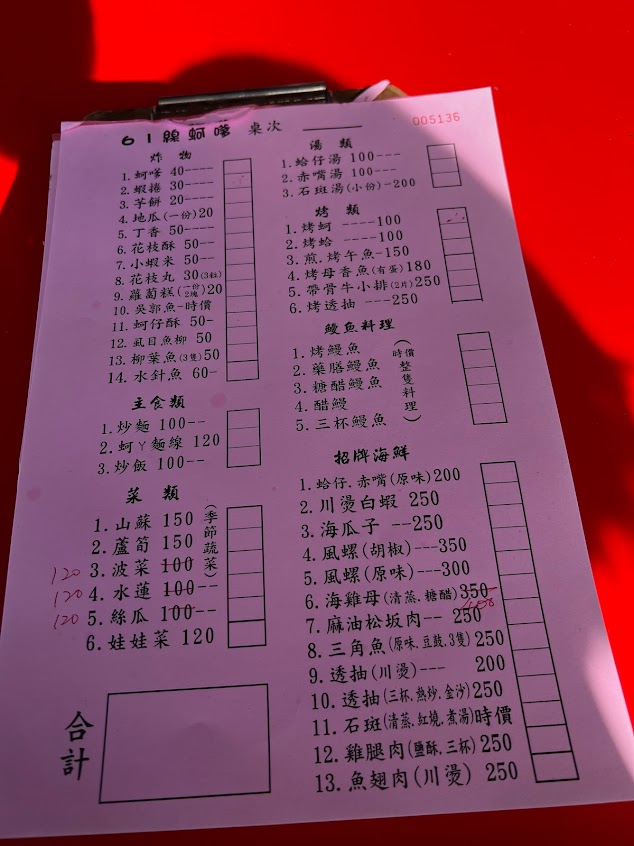 005136
61線蚵嗲 桌次
炸 物
1. 蚵嗲 40----
2. 蝦捲 30----
3. 芋餅 20---
4. 地瓜(一份)20
5. 丁香 50----
6. 花枝酥 50--
7. 小蝦米 50--
8. 花枝丸 30(3粒)
9. 蘿蔔糕(一份2塊)20
10. 吳郭魚-時價
11. 蚵仔酥 50-
12. 虱目魚柳 50
13. 柳葉魚(3隻)50
14. 水針魚 60-
主食類
1. 炒麵 100--
2. 蚵ㄚ麵線 120
3. 炒飯 100---
菜 類
(季節蔬菜)
1. 山蘇 150
2. 蘆筍 150
120 3. 波菜 100
120 4. 水蓮 100--
120 5. 絲瓜 100--
6. 娃娃菜 120
合計
湯 類
1. 蛤仔湯 100---
2. 赤嘴湯 100---
3. 石斑湯(小份)-200
烤 類
1. 烤蚵 ----100
2. 烤蛤 ----100
3. 煎.烤午魚-150
4. 烤母香魚(有蛋)180
5. 帶骨牛小排(2片)250
6. 烤透抽 ---250
鰻魚料理
(時價整隻料理)
1. 烤鰻魚
2. 藥膳鰻魚
3. 糖醋鰻魚
4. 醋鰻
5. 三杯鰻魚
招牌海鮮
1. 蛤仔.赤嘴(原味)200
2. 川燙白蝦 250
3. 海瓜子 --250
4. 風螺(胡椒)---350
5. 風螺(原味)---300
6. 海雞母(清蒸、糖醋)350
7. 麻油松坂肉-- 250
8. 三角魚(原味、豆鼓、3隻)250
9. 透抽(川燙)--- 200
10. 透抽(三杯、熱炒、金沙)250
11. 石斑(清蒸、紅燒、煮湯)時價
12. 雞腿肉(鹽酥、三杯)250
13. 魚翅肉(川燙) 250